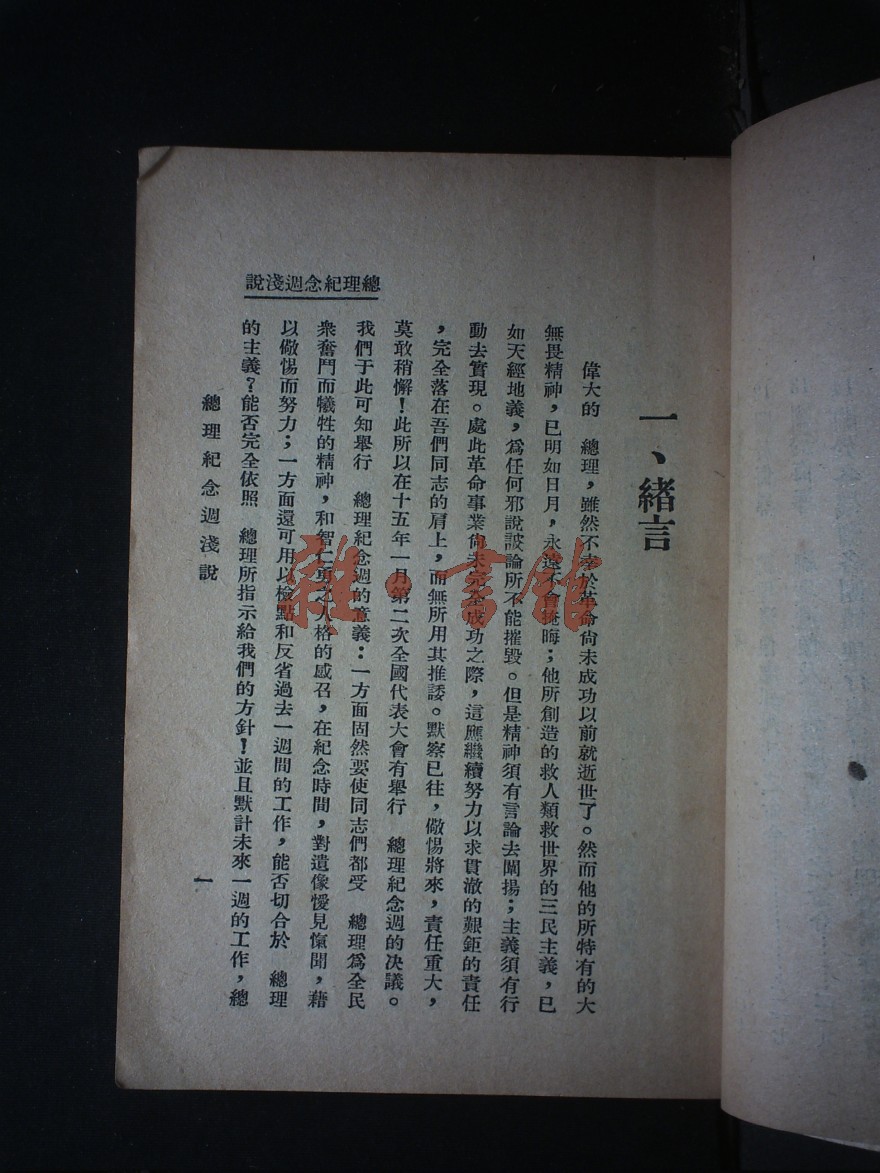 總理紀念週淺說
一、緒言
偉大的　總理，雖然不幸於革命尙未成功以前就逝世了。然而他的所特有的大
無畏精神，已明如日月，永遠不會掩晦；他所創造的救人類救世界的三民主義，已
如天經地義，爲任何邪說詖論所不能摧毀。但是精神須有言論去闡揚；主義須有行
動去實現。處此革命事業尙未完全成功之際，這應繼續努力以求貫澈的艱鉅的責任
，完全落在吾們同志的肩上，而無所用其推諉。默察已往，儆惕將來，責任重大，
莫敢稍懈！此所以在十五年一月第二次全國代表大會有舉行　總理紀念週的决議。
我們于此可知舉行　總理紀念週的意義：一方面固然要使同志們都受　總理爲全民
衆奮鬥而犧牲的精神，和智仁勇之人格的感召，在紀念時間，對遺像僾見愾聞，藉
以儆惕而努力；一方面還可用以檢點和反省過去一週間的工作，能否切合於　總理
的主義？能否完全依照　總理所指示給我們的方針！並且默計未來一週的工作，總
總理紀念週淺說
一
雜·書館